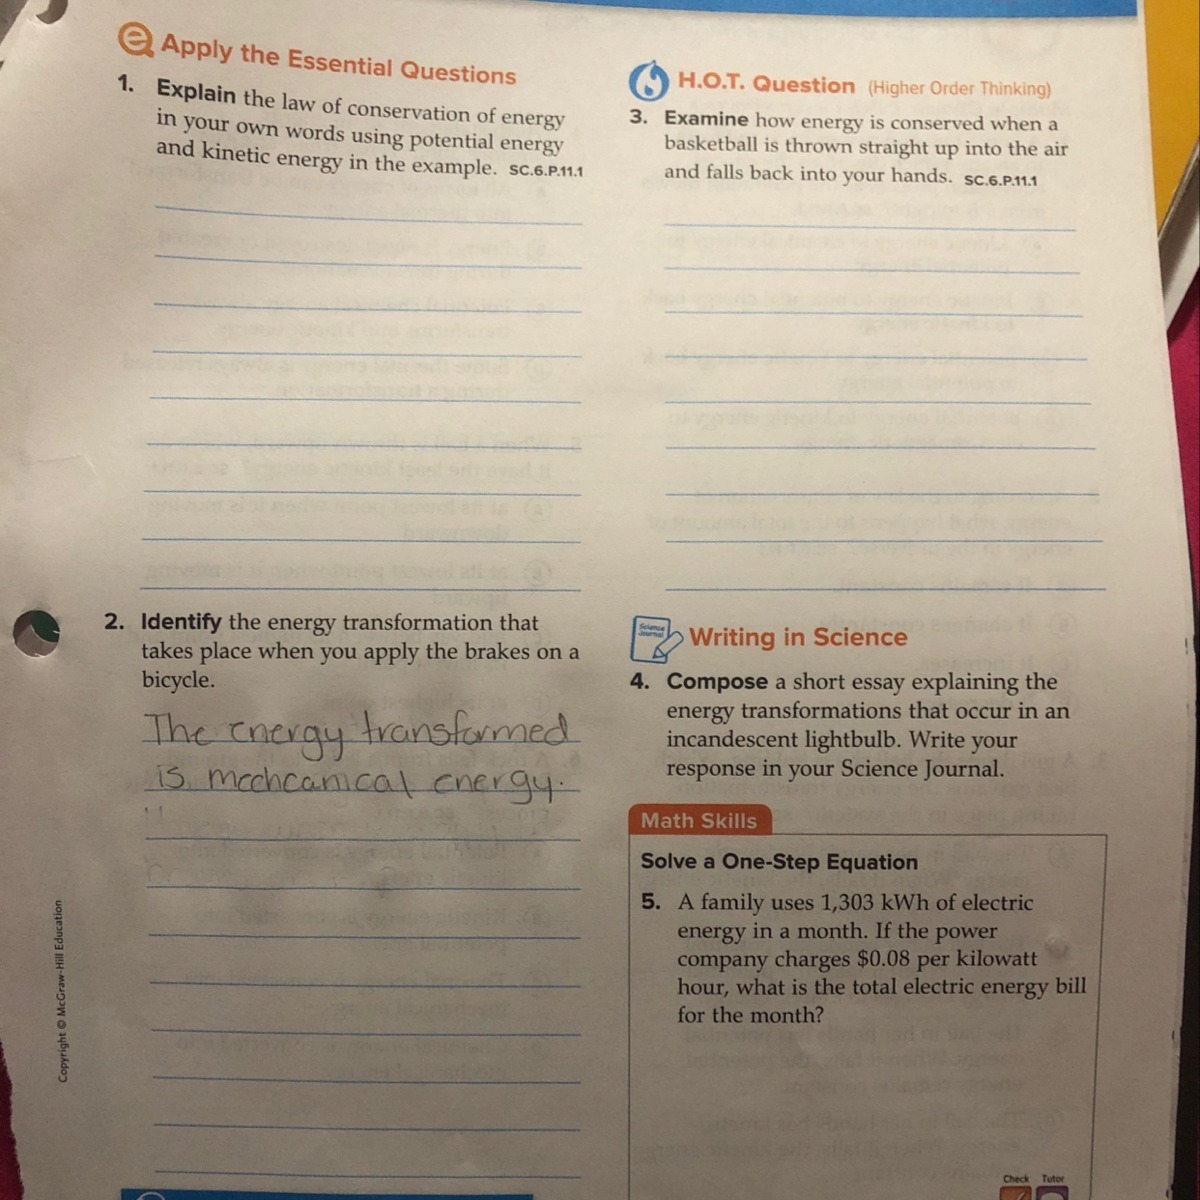 Apply the Essential Questions
1. Explain the law of conservation of energy
in your own words using potential energy
and kinetic energy in the example. SC.6.P.11.1
2. Identify the energy transformation that
takes place when you apply the brakes on a
bicycle.
The energy transformed
is mechcanical energy.
Copyright © McGraw-Hill Education
H.O.T. Question (Higher Order Thinking)
3. Examine how energy is conserved when a
basketball is thrown straight up into the air
and falls back into your hands. SC.6.P.11.1
Science
Journal
Writing in Science
4. Compose a short essay explaining the
energy transformations that occur in an
incandescent lightbulb. Write your
response in your Science Journal.
Math Skills
Solve a One-Step Equation
5. A family uses 1,303 kWh of electric
energy in a month. If the power
company charges $0.08 per kilowatt
hour, what is the total electric energy bill
for the month?
Check Tutor